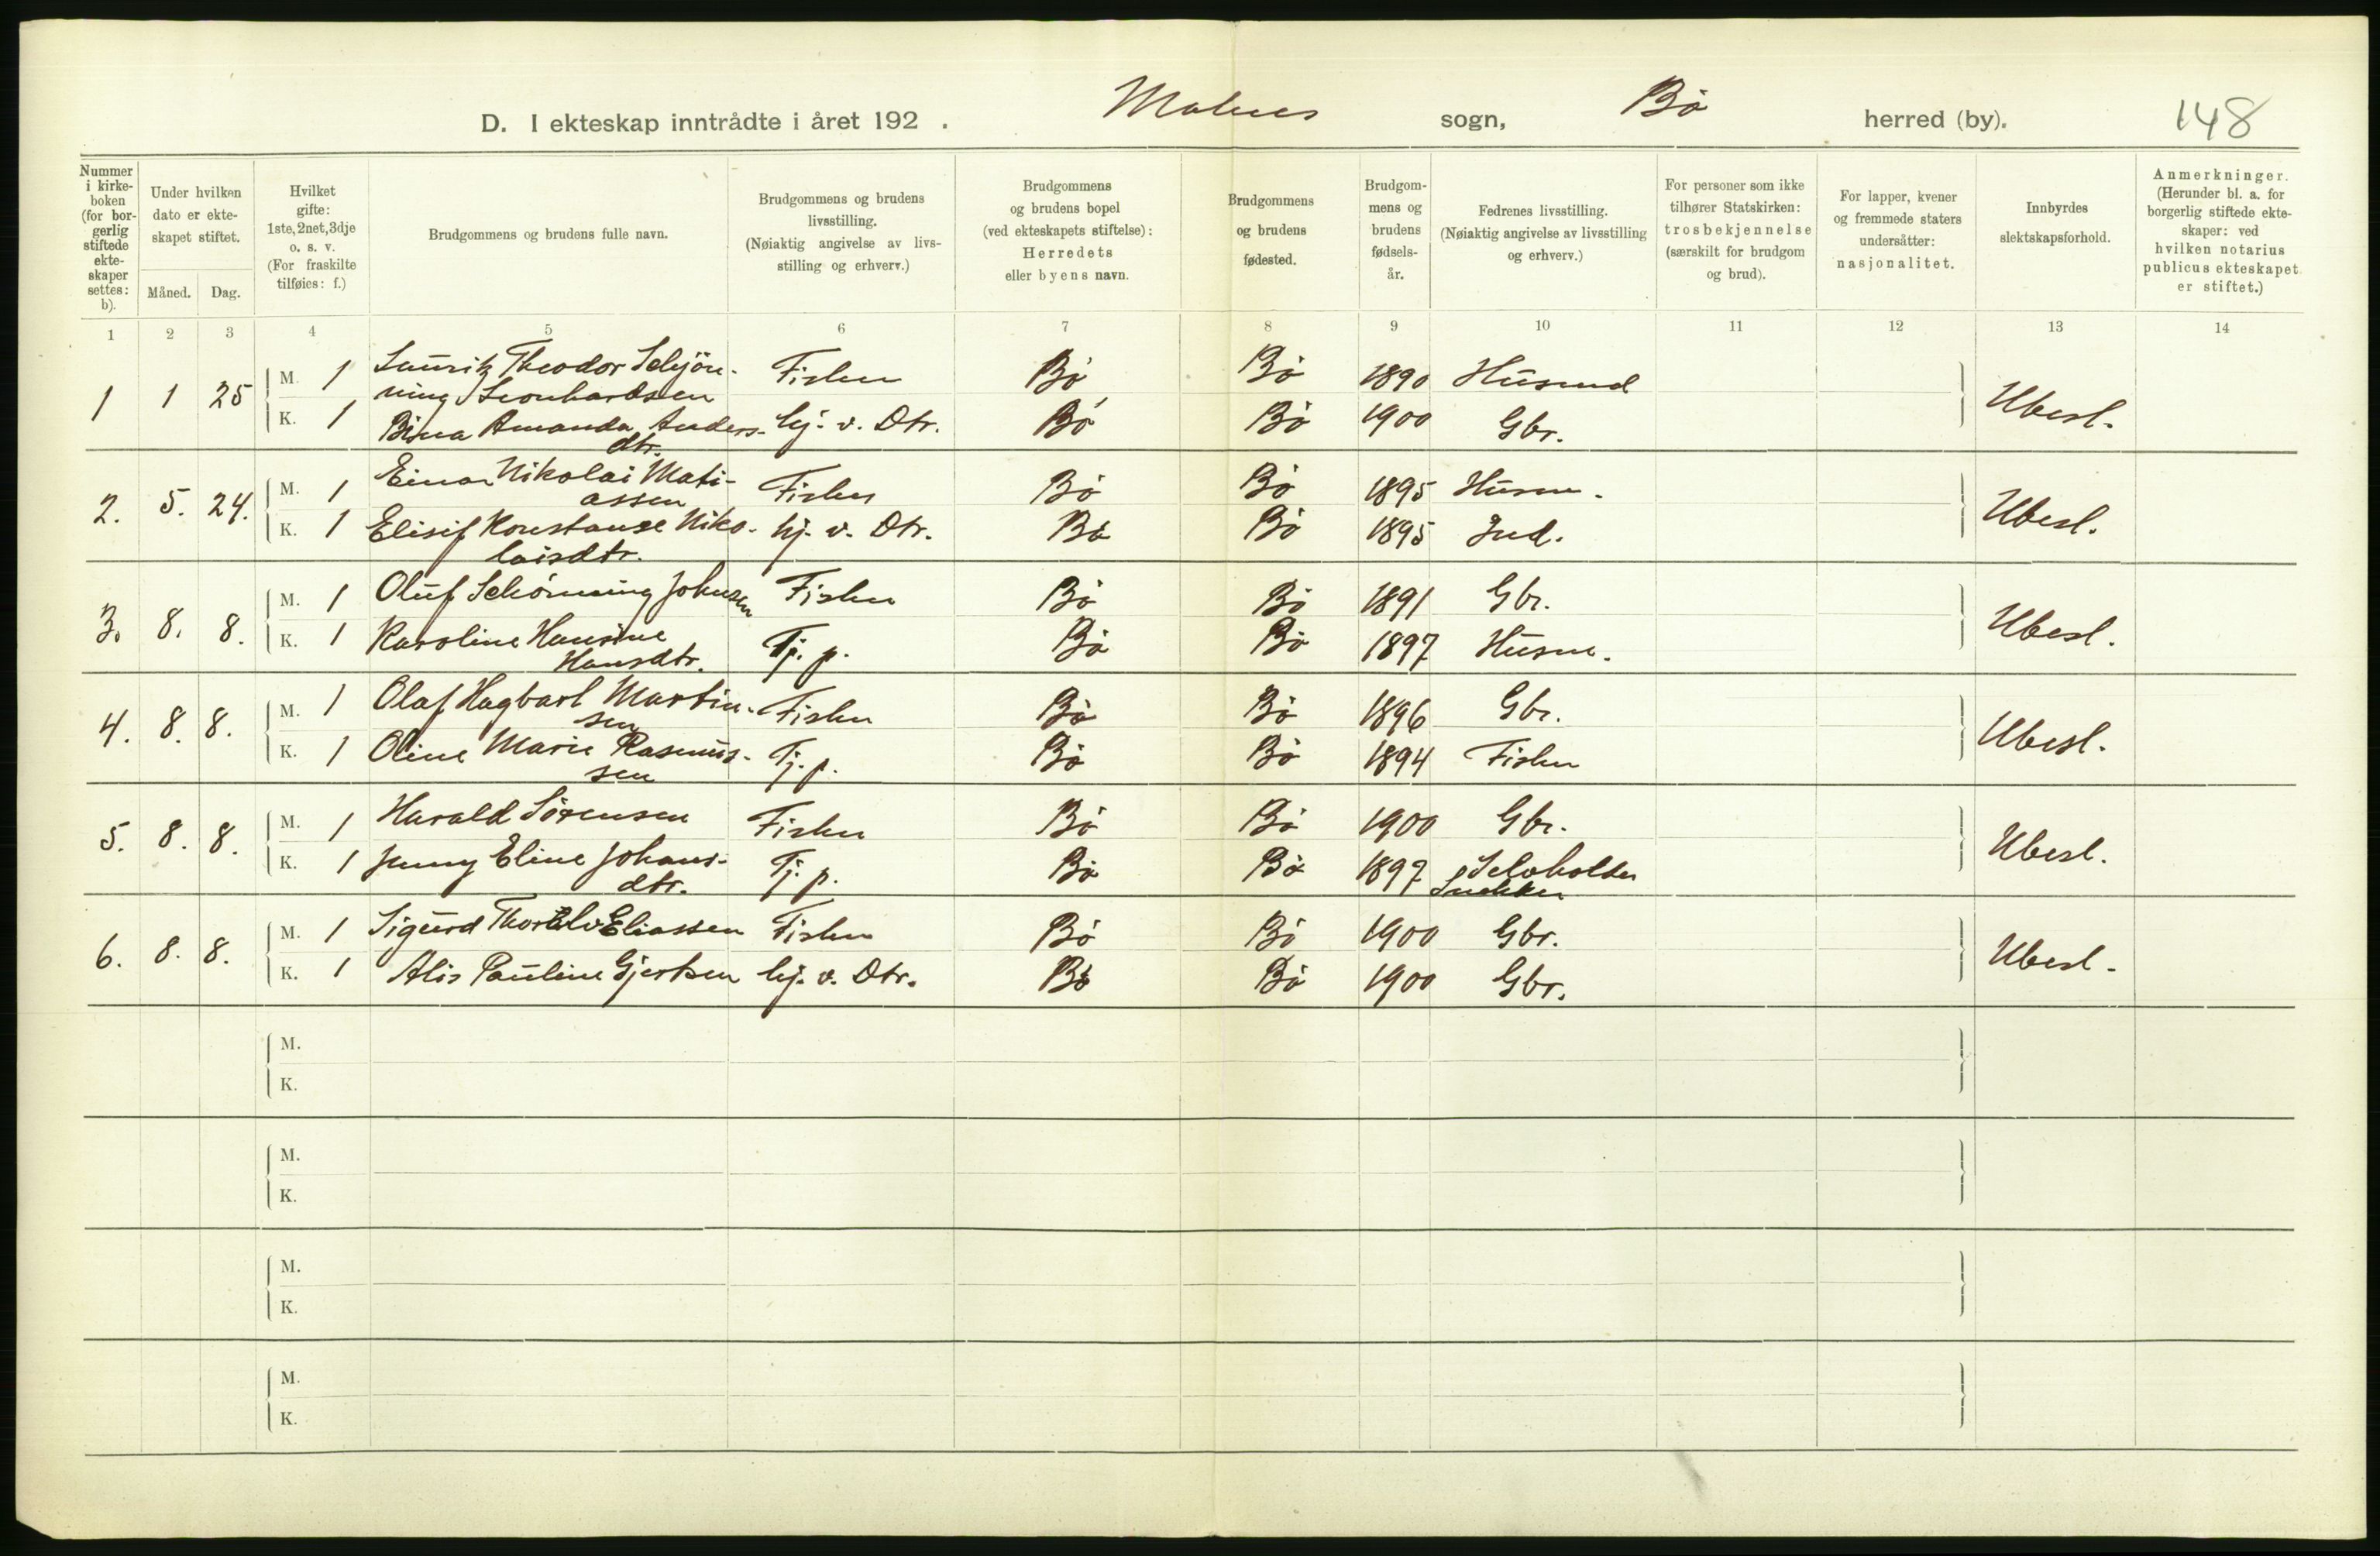 D. I ekteskap inntrådte i året 192 . Malnes sogn, Bø herred (by). 148
Nummer i kirke-boken (for bor-gerlig stiftede ekte-skaper settes: b).
Under hvilken dato er ekte-skapet stiftet.
Måned. Dag.
Hvilket gifte: 1ste, 2net, 3dje o. s. v. (For fraskilte tilføies: f.)
Brudgommens og brudens fulle navn.
Brudgommens og brudens livsstilling. (Nøiaktig angivelse av livs-stilling og erhverv.)
Brudgommens og brudens bopel (ved ekteskapets stiftelse): Herredets eller byens navn.
Brudgommens og brudens fødested.
Brudgom-mens og brudens fødsels-år.
Fedrenes livsstilling. (Nøiaktig angivelse av livsstilling og erhverv.)
For personer som ikke tilhører Statskirken: trosbekjennelse (særskilt for brudgom og brud).
For lapper, kvener og fremmede staters undersåtter: nasjonalitet.
Innbyrdes slektskapsforhold.
Anmerkninger. (Herunder bl. a. for borgerlig stiftede ekte-skaper: ved hvilken notarius publicus ekteskapet er stiftet.)
1 2 3 4 5 6 7 8 9 10 11 12 13 14
1 1 25 M. 1 Lauritz Theodor Schjön- Fisker Bø Bø 1890 Husmd Ubesl.
ning Leonhardsen
K. 1 Bina Amanda Anders- hj. v. Dtr. Bø Bø 1900 Gbr.
dtr.
2. 5. 24. M. 1 Einar Nikolai Mati- Fisker Bø Bø 1895 Husm. Ubesl.
assen
K. 1 Elisif Konstanse Niko- hj. v. Dtr. Bø Bø 1895 Ind.
laisdtr.
3. 8. 8. M. 1 Oluf Schönning Johnsen Fisker Bø Bø 1891 Gbr. Ubesl.
K. 1 Karoline Hansine Tj. p. Bø Bø 1897 Husm.
Hansdtr.
4. 8. 8. M. 1 Olaf Hagbart Martin- Fisker Bø Bø 1896 Gbr. Ubesl.
sen
K. 1 Oline Marie Rasmus- Tj. p. Bø Bø 1894 Fisker
sen
5. 8. 8. M. 1 Harald Sörensen Fisker Bø Bø 1900 Gbr. Ubesl.
K. 1 Jenny Eline Johans- Tj. p. Bø Bø 1897
dtr. Snekker
6. 8. 8. M. 1 Sigurd Eliassen Fisker Bø Bø 1900 Gbr. Ubesl.
K. 1 Alis Pauline Gjertsen hj. v. Dtr. Bø Bø 1900 Gbr.
M.
K.
M.
K.
M.
K.
M.
K.